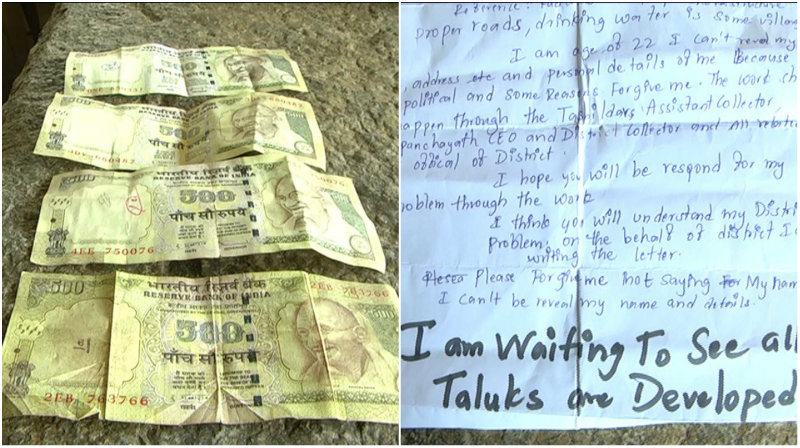 500
पाँच सौ रुपये
500
भारतीय रिज़र्व बैंक
500
पाँच सौ रुपये
500
भारतीय रिज़र्व बैंक
RESERVE BANK OF INDIA
500
पाँच सौ रुपये
4EE 750076
500
भारतीय रिज़र्व बैंक
RESERVE BANK OF INDIA
2EB 763766
500
पाँच सौ रुपये
2EB 763766
Reference:
proper roads, drinking water is some villag
I am age of 22 I can't reveal my
, address etc and personal details of me Because
political and some Reasons Forgive me. The work sh
appen through the Tashildars Assistant Collector,
panchayath CEO and District Collector and All related
offical of District.
I hope you will be respond for my
oblem through the work
I think you will understand my Distri
problem, on the behalf of district I a
writing the letter.
Please Forgive me not saying For My name
I can't be reveal my name and details.
I am Waiting To See all
Taluks are Developed